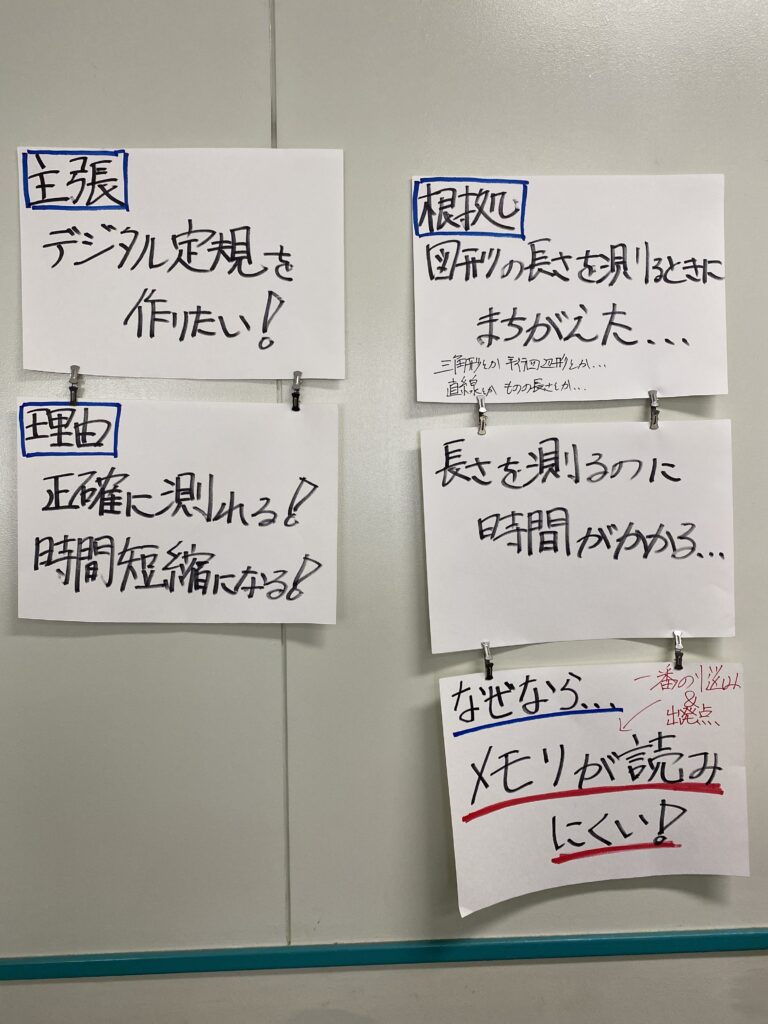 主張
デジタル定規を
作りたい!
理由
正確に測れる!
時間短縮になる!
根拠
図形の長さを測るときに
まちがえた...
三角形とか 平行四辺形とか...
直線とか ものの長さとか...
長さを測るのに
時間がかかる...
なぜなら...
一番の悩み
&
出発点、
メモリが読み
にくい!